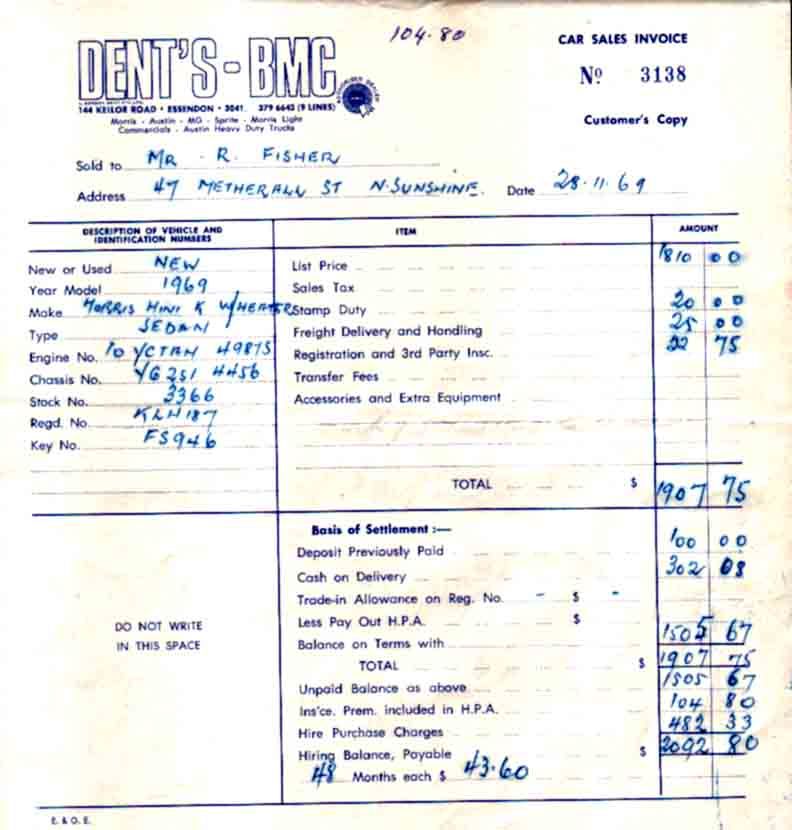 104.80
DENT'S-BMC
CAR SALES INVOICE
Nº 3138
144 KEILOR ROAD • ESSENDON • 3041. 379 6643 (9 LINES)
Morris - Austin - MG - Sprite - Morris Light
Commercials - Austin Heavy Duty Trucks
Customer's Copy
Sold to MR. R. FISHER
Address 47 METHERALL ST N. SUNSHINE. Date 28.11.69
DESCRIPTION OF VEHICLE AND IDENTIFICATION NUMBERS ITEM AMOUNT
New or Used NEW List Price 1810 00
Year Model 1969 Sales Tax
Make MORRIS MINI K Stamp Duty 20 00
Type SEDAN Freight Delivery and Handling 25 00
Engine No. 10 YCTAH 49875 Registration and 3rd Party Insc. 22 75
Chassis No. YG2S1 4456 Transfer Fees
Stock No. 3366 Accessories and Extra Equipment
Regd. No. KLH187
Key No. FS946
TOTAL $ 1907 75
Basis of Settlement :—
Deposit Previously Paid 100 00
Cash on Delivery 302 08
Trade-in Allowance on Reg. No. - $ -
Less Pay Out H.P.A. $
DO NOT WRITE
IN THIS SPACE
Balance on Terms with 1505 67
TOTAL $ 1907 75
Unpaid Balance as above 1505 67
Ins'ce. Prem. included in H.P.A. 104 80
Hire Purchase Charges 482 33
Hiring Balance, Payable $ 2092 80
48 Months each $ 43.60
E. & O. E.